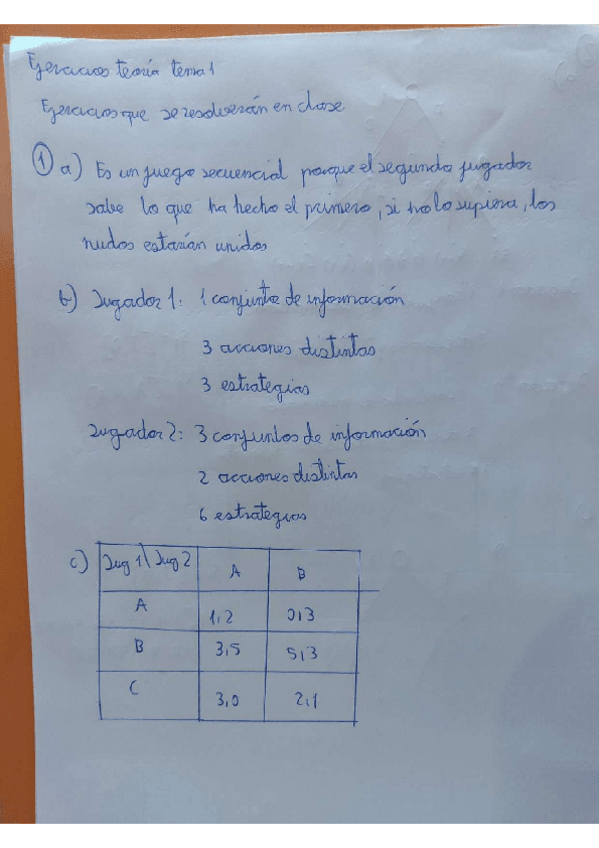 Ejercicios teoría tema 1
Ejercicios que se resolverán en clase
1 a) Es un juego secuencial porque el segundo jugador
sabe lo que ha hecho el primero, si no lo supiera, los
nudos estarían unidos
b) Jugador 1: 1 conjunto de información
3 acciones distintas
3 estrategias
Jugador 2: 3 conjuntos de información
2 acciones distintas
6 estrategias
c) Jug 1\Jug 2 A B
A 1,2 0,3
B 3,5 5,3
C 3,0 2,1